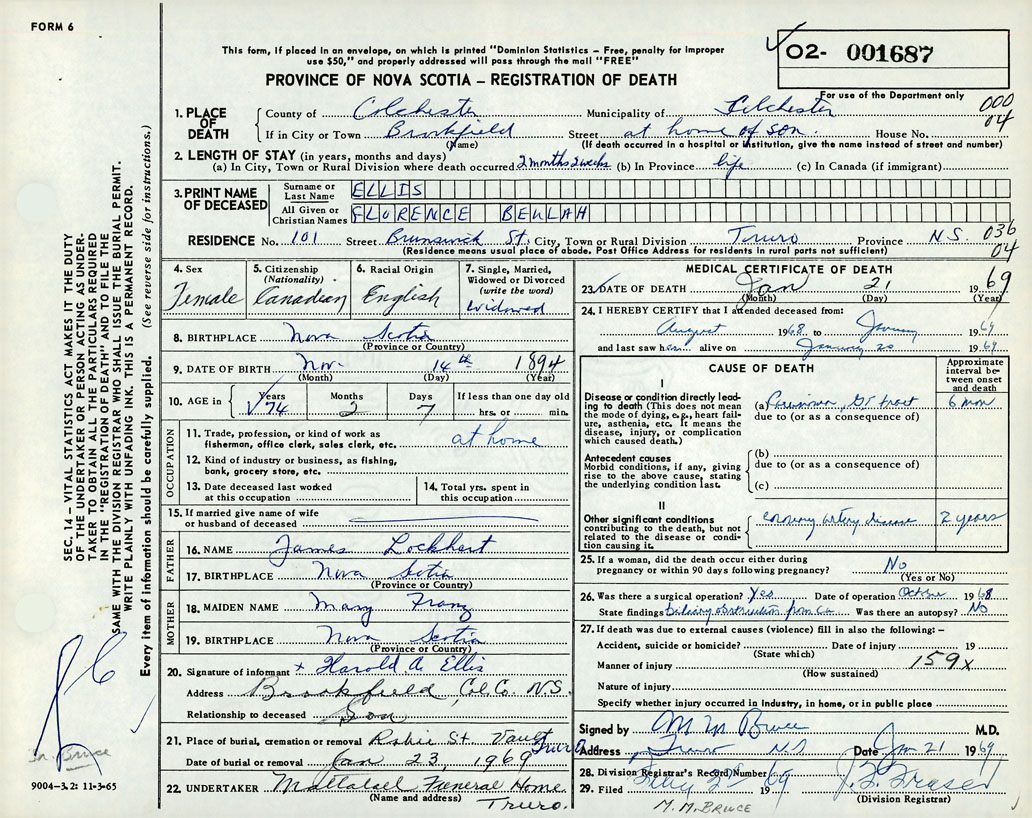 FORM 6
This form, if placed in an envelope, on which is printed "Dominion Statistics – Free, penalty for improper
use $50," and properly addressed will pass through the mail "FREE"
PROVINCE OF NOVA SCOTIA – REGISTRATION OF DEATH
02- 001687
For use of the Department only
000
04
1. PLACE OF DEATH
County of Colchester Municipality of Colchester
If in City or Town Brookfield Street at home of son. House No.
(Name) (If death occurred in a hospital or institution, give the name instead of street and number)
2. LENGTH OF STAY (in years, months and days)
(a) In City, Town or Rural Division where death occurred 2 months 2 weeks (b) In Province life (c) In Canada (if immigrant)
3. PRINT NAME OF DECEASED
Surname or Last Name ELLIS
All Given or Christian Names FLORENCE BEULAH
RESIDENCE No. 101 Street Brunswick St. City, Town or Rural Division Truro Province N.S.
036
04
(Residence means usual place of abode. Post Office Address for residents in rural parts not sufficient)
4. Sex
Female
5. Citizenship
(Nationality)
Canadian
6. Racial Origin
English
7. Single, Married,
Widowed or Divorced
(write the word)
widowed
8. BIRTHPLACE Nova Scotia
(Province or Country)
9. DATE OF BIRTH Nov. 14th 1894
(Month) (Day) (Year)
10. AGE in Years 74 Months 2 Days 7 If less than one day old
hrs. or min.
OCCUPATION
11. Trade, profession, or kind of work as
fisherman, office clerk, sales clerk, etc. at home
12. Kind of industry or business, as fishing,
bank, grocery store, etc.
13. Date deceased last worked
at this occupation
14. Total yrs. spent in
this occupation
15. If married give name of wife
or husband of deceased
FATHER
16. NAME James Lockhart
17. BIRTHPLACE Nova Scotia
(Province or Country)
MOTHER
18. MAIDEN NAME Mary Franz
19. BIRTHPLACE Nova Scotia
(Province or Country)
20. Signature of informant x Harold A. Ellis
Address Brookfield, Col. Co. N.S.
Relationship to deceased Son
21. Place of burial, cremation or removal Robie St. Vault Truro
Date of burial or removal Jan 23, 1969
22. UNDERTAKER Mattatall Funeral Home
(Name and address) Truro.
MEDICAL CERTIFICATE OF DEATH
23. DATE OF DEATH Jan 21 1969
(Month) (Day) (Year)
24. I HEREBY CERTIFY that I attended deceased from:
August 1968 to January 1969
and last saw her alive on January 20 1969
CAUSE OF DEATH
Approximate interval between onset and death
I
Disease or condition directly leading to death (This does not
mean the mode of dying, e.g., heart failure, asthenia, etc. It means the
disease, injury, or complication
which caused death.)
(a) Carcinoma, GI tract 6 mon
due to (or as a consequence of)
Antecedent causes
Morbid conditions, if any, giving
rise to the above cause, stating
the underlying condition last.
(b)
due to (or as a consequence of)
(c)
II
Other significant conditions
contributing to the death, but not
related to the disease or condition causing it.
coronary artery disease 2 years
25. If a woman, did the death occur either during
pregnancy or within 90 days following pregnancy? No
(Yes or No)
26. Was there a surgical operation? Yes Date of operation October 1968
State findings biliary obstruction from Ca Was there an autopsy? No
27. If death was due to external causes (violence) fill in also the following: –
Accident, suicide or homicide? Date of injury 19
(State which)
Manner of injury 159x
(How sustained)
Nature of injury
Specify whether injury occurred in industry, in home, or in public place
Signed by M M Bruce M.D.
Address Truro N.S. Date Jan 21 1969
28. Division Registrar's Record Number
29. Filed 1969 J. F. Fraser
(Division Registrar)
M. M. BRUCE
SEC. 14 – VITAL STATISTICS ACT MAKES IT THE DUTY
OF THE UNDERTAKER OR PERSON ACTING AS UNDER-
TAKER TO OBTAIN ALL THE PARTICULARS REQUIRED
IN THE "REGISTRATION OF DEATH" AND TO FILE THE
SAME WITH THE DIVISION REGISTRAR WHO SHALL ISSUE THE BURIAL PERMIT.
WRITE PLAINLY WITH UNFADING INK. THIS IS A PERMANENT RECORD.
Every item of information should be carefully supplied. (See reverse side for instructions.)
Dr. Bruce
9004–3.2: 11-3-65